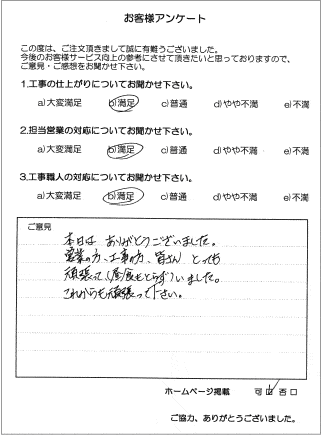 お客様アンケート
この度は、ご注文頂きまして誠に有難うございました。
今後のお客様サービス向上の参考にさせて頂きたいと思っておりますので、
ご意見・ご感想をお聞かせ下さい。
1.工事の仕上がりについてお聞かせ下さい。
a)大変満足 b)満足 c)普通 d)やや不満 e)不満
2.担当営業の対応についてお聞かせ下さい。
a)大変満足 b)満足 c)普通 d)やや不満 e)不満
3.工事職人の対応についてお聞かせ下さい。
a)大変満足 b)満足 c)普通 d)やや不満 e)不満
ご意見
本日は ありがとうございました。
営業の方、工事の方、皆さん とても
頑張って(昼食もとらず)いました。
これからも頑張って下さい。
ホームページ掲載 可 否
ご協力、ありがとうございました。